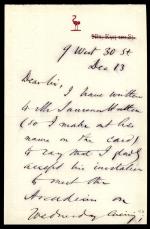 9 West 30 St
Dec 13
Dear Sir, I have written
to Mr Laurence Hutton
(so I make out his
name on the card)
to say that I gladly
accept his invitation
to meet the
Arcadian on
Wednesday evening